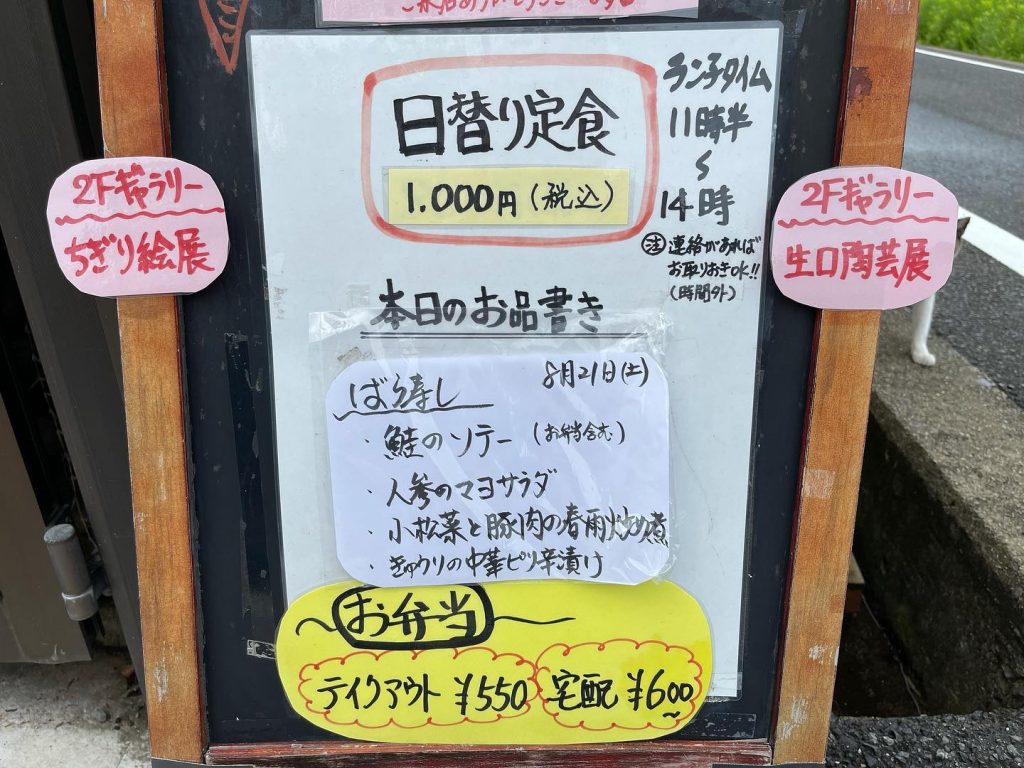 日替り定食
1.000円(税込)
ランチタイム
11時半
〜
14時
注 連絡があれば
お取りおきOK!!
(時間外)
2Fギャラリー
ちぎり絵展
2Fギャラリー
生口陶芸展
本日のお品書き
8月21日(土)
ばら寿し
・鮭のソテー (お弁当含む)
・人参のマヨサラダ
・小松菜と豚肉の春雨炒め煮
・きゅうりの中華ピリ辛漬け
お弁当
テイクアウト ¥550
宅配 ¥600〜